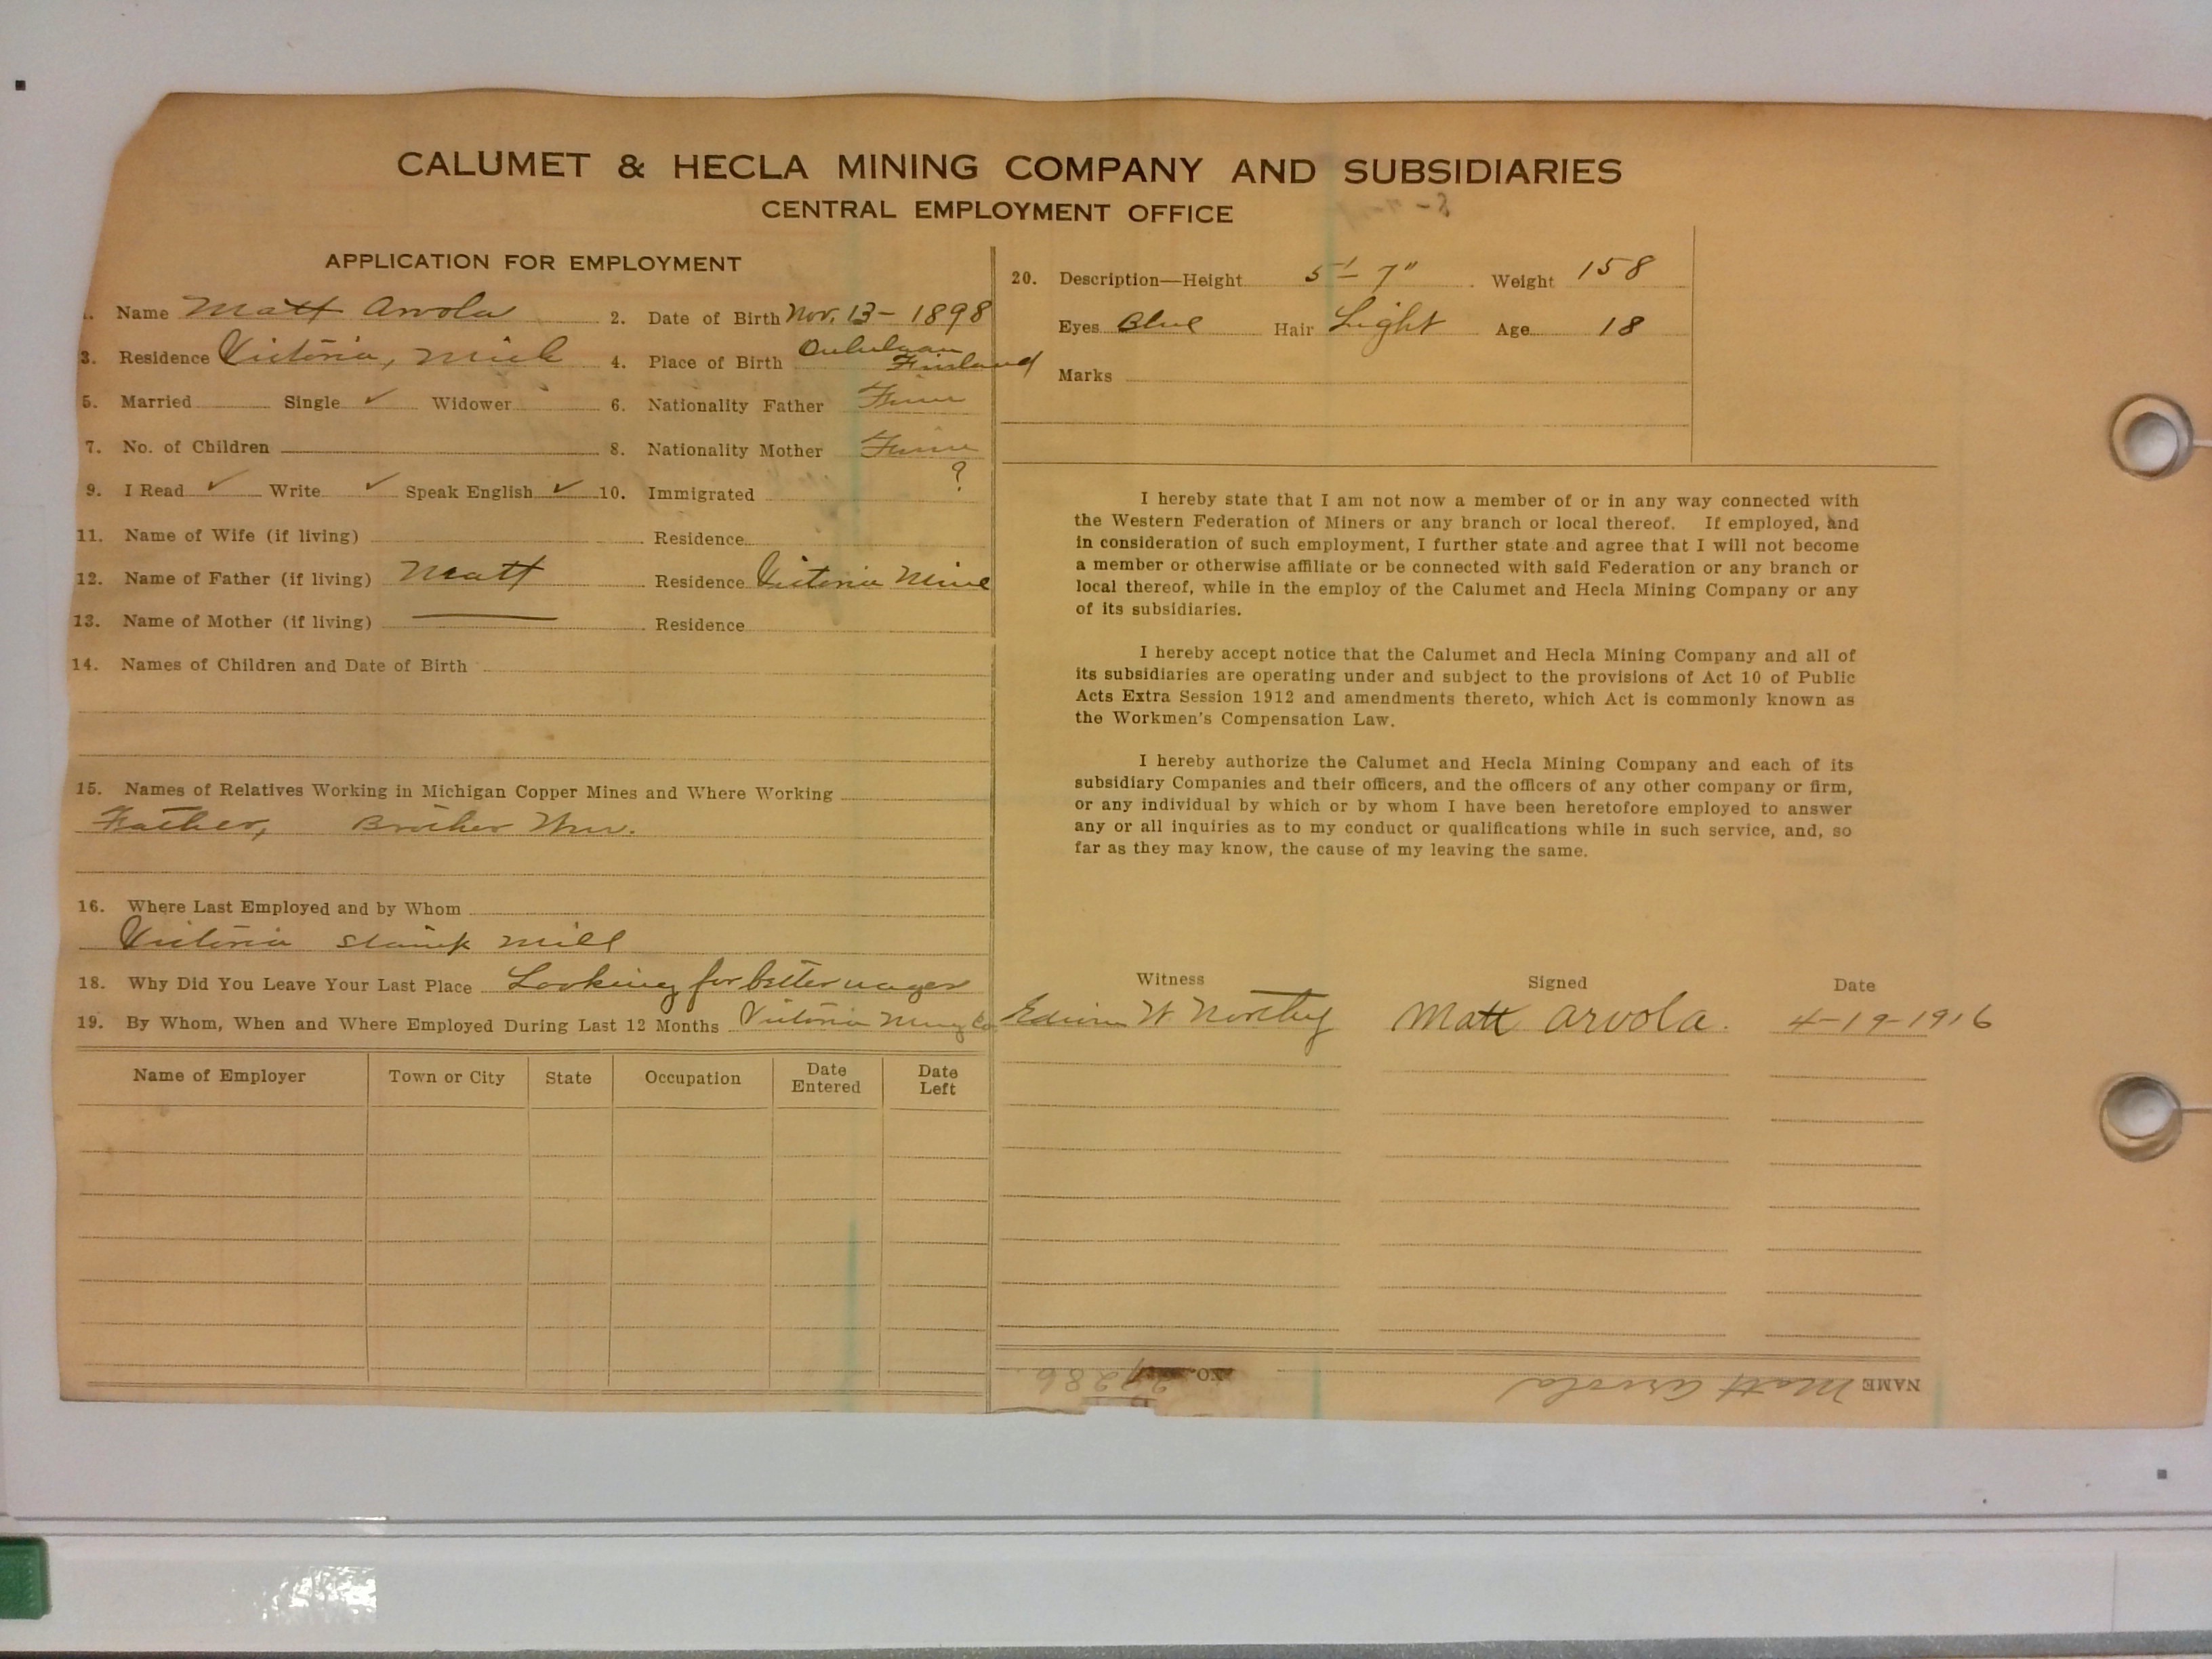 CALUMET & HECLA MINING COMPANY AND SUBSIDIARIES
CENTRAL EMPLOYMENT OFFICE
APPLICATION FOR EMPLOYMENT
Name Matt Arvola 2. Date of Birth Nov. 13 - 1898
3. Residence Victoria, Mich 4. Place of Birth Finland
5. Married Single ✓ Widower 6. Nationality Father Finn
7. No. of Children 8. Nationality Mother Finn
9. I Read ✓ Write ✓ Speak English ✓ 10. Immigrated ?
11. Name of Wife (if living) Residence
12. Name of Father (if living) Matt Residence Victoria Mine
13. Name of Mother (if living) — Residence
14. Names of Children and Date of Birth
15. Names of Relatives Working in Michigan Copper Mines and Where Working
Father, Brother Wm.
16. Where Last Employed and by Whom
Victoria Stamp Mill
18. Why Did You Leave Your Last Place Looking for better wages
19. By Whom, When and Where Employed During Last 12 Months Victoria Mng Co
Name of Employer Town or City State Occupation Date Entered Date Left
20. Description—Height 5'- 7" Weight 158
Eyes Blue Hair Light Age 18
Marks
I hereby state that I am not now a member of or in any way connected with
the Western Federation of Miners or any branch or local thereof. If employed, and
in consideration of such employment, I further state and agree that I will not become
a member or otherwise affiliate or be connected with said Federation or any branch or
local thereof, while in the employ of the Calumet and Hecla Mining Company or any
of its subsidiaries.
I hereby accept notice that the Calumet and Hecla Mining Company and all of
its subsidiaries are operating under and subject to the provisions of Act 10 of Public
Acts Extra Session 1912 and amendments thereto, which Act is commonly known as
the Workmen's Compensation Law.
I hereby authorize the Calumet and Hecla Mining Company and each of its
subsidiary Companies and their officers, and the officers of any other company or firm,
or any individual by which or by whom I have been heretofore employed to answer
any or all inquiries as to my conduct or qualifications while in such service, and, so
far as they may know, the cause of my leaving the same.
Witness Signed Date
Edwin W. Northey Matt Arvola. 4-19-1916
NAME Matt Arvola No.